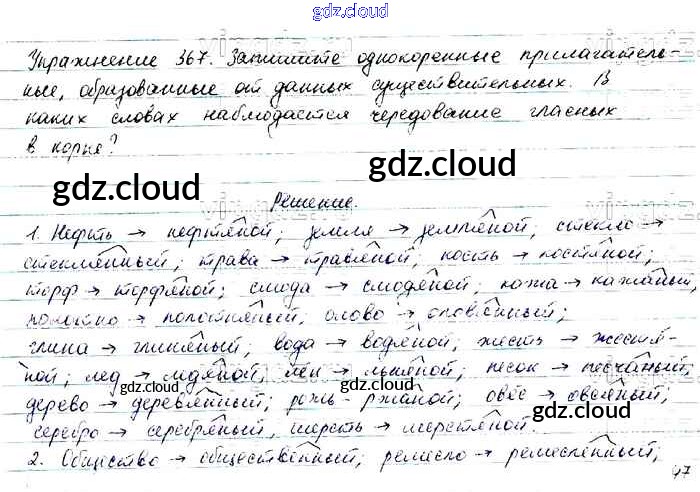 gdz.cloud
Упражнение 367. Запишите однокоренные прилагатель-
ные, образованные от данных существительных. В
каких словах наблюдается чередование гласных
в корне?
gdz.cloud
gdz.cloud
Решение.
1. Нефть → нефтяной; земля → земляной; стекло →
стеклянный; трава → травяной; кость → костяной;
торф → торфяной; смола → смоляной; кожа → кожаный,
полотно → полотняный; олово → оловянный;
глина → глиняный; вода → водяной; жесть → жестя-
ной; лёд → ледяной; лён → льняной; песок → песчаный;
gdz.cloud
gdz.cloud
дерево → деревянный; рожь - ржаной; овёс → овсяный;
gdz.cloud
серебро → серебряный, шерсть → шерстяной.
2. Общество → общественный; ремесло → ремесленный;
47